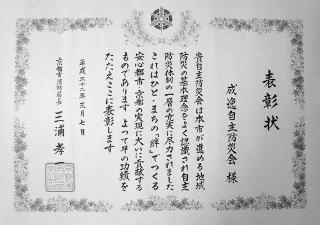 表彰状
成逸自主防災会 様
貴自主防災会は本市が進める地域
防災の基本理念をよく認識され自主
防災体制の一層の充実に尽力されました
これはひとえにまちの「絆」でつくる
安心都市・京都の実現に大いに貢献する
ものであります よってその功績を
たたえここに表彰します
平成二十二年三月七日
京都市消防局長
三浦孝一